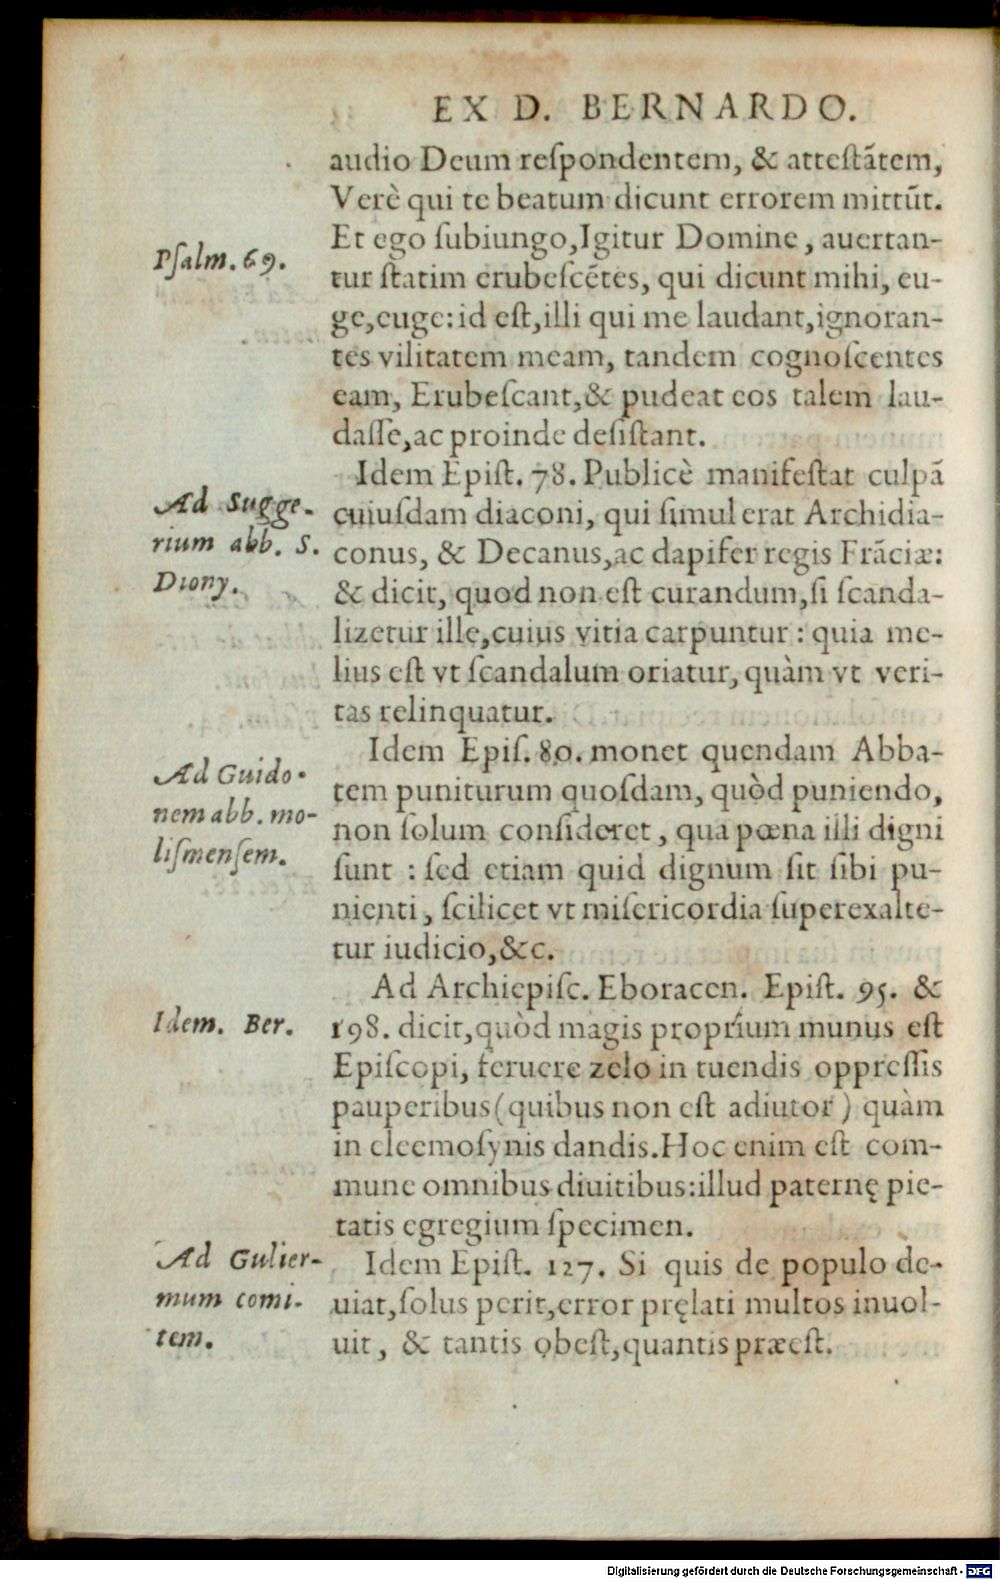 EX D. BERNARDO.
audio Deum reſpondentem, & atteſtãtem,
Verè qui te beatum dicunt errorem mittũt.
Et ego ſubiungo, Igitur Domine, auertan-
Pſalm. 69.
tur ſtatim erubeſcẽtes, qui dicunt mihi, eu-
ge, euge: id eſt, illi qui me laudant, ignoran-
tes vilitatem meam, tandem cognoſcentes
eam, Erubeſcant, & pudeat eos talem lau-
daſſe, ac proinde deſiſtant.
Idem Epiſt. 78. Publicè manifeſtat culpã
Ad Sugge-
rium abb. S.
Diony.
cuiuſdam diaconi, qui ſimul erat Archidia-
conus, & Decanus, ac dapifer regis Frãciæ:
& dicit, quod non eſt curandum, ſi ſcanda-
lizetur ille, cuius vitia carpuntur: quia me-
lius eſt vt ſcandalum oriatur, quàm vt veri-
tas relinquatur.
Idem Epiſ. 80. monet quendam Abba-
Ad Guido-
nem abb. mo-
liſmenſem.
tem puniturum quoſdam, quòd puniendo,
non ſolum conſideret, qua pœna illi digni
ſunt: ſed etiam quid dignum ſit ſibi pu-
nienti, ſcilicet vt miſericordia ſuperexalte-
tur iudicio, &c.
Ad Archiepiſc. Eboracen. Epiſt. 95. &
Idem. Ber.
198. dicit, quòd magis proprium munus eſt
Epiſcopi, feruere zelo in tuendis oppreſſis
pauperibus (quibus non eſt adiutor) quàm
in eleemoſynis dandis. Hoc enim eſt com-
mune omnibus diuitibus: illud paternę pie-
tatis egregium ſpecimen.
Ad Gulier-
mum comi-
tem.
Idem Epiſt. 127. Si quis de populo de-
uiat, ſolus perit, error pręlati multos inuol-
uit, & tantis obeſt, quantis præeſt.
Digitalisierung gefördert durch die Deutsche Forschungsgemeinschaft - DFG